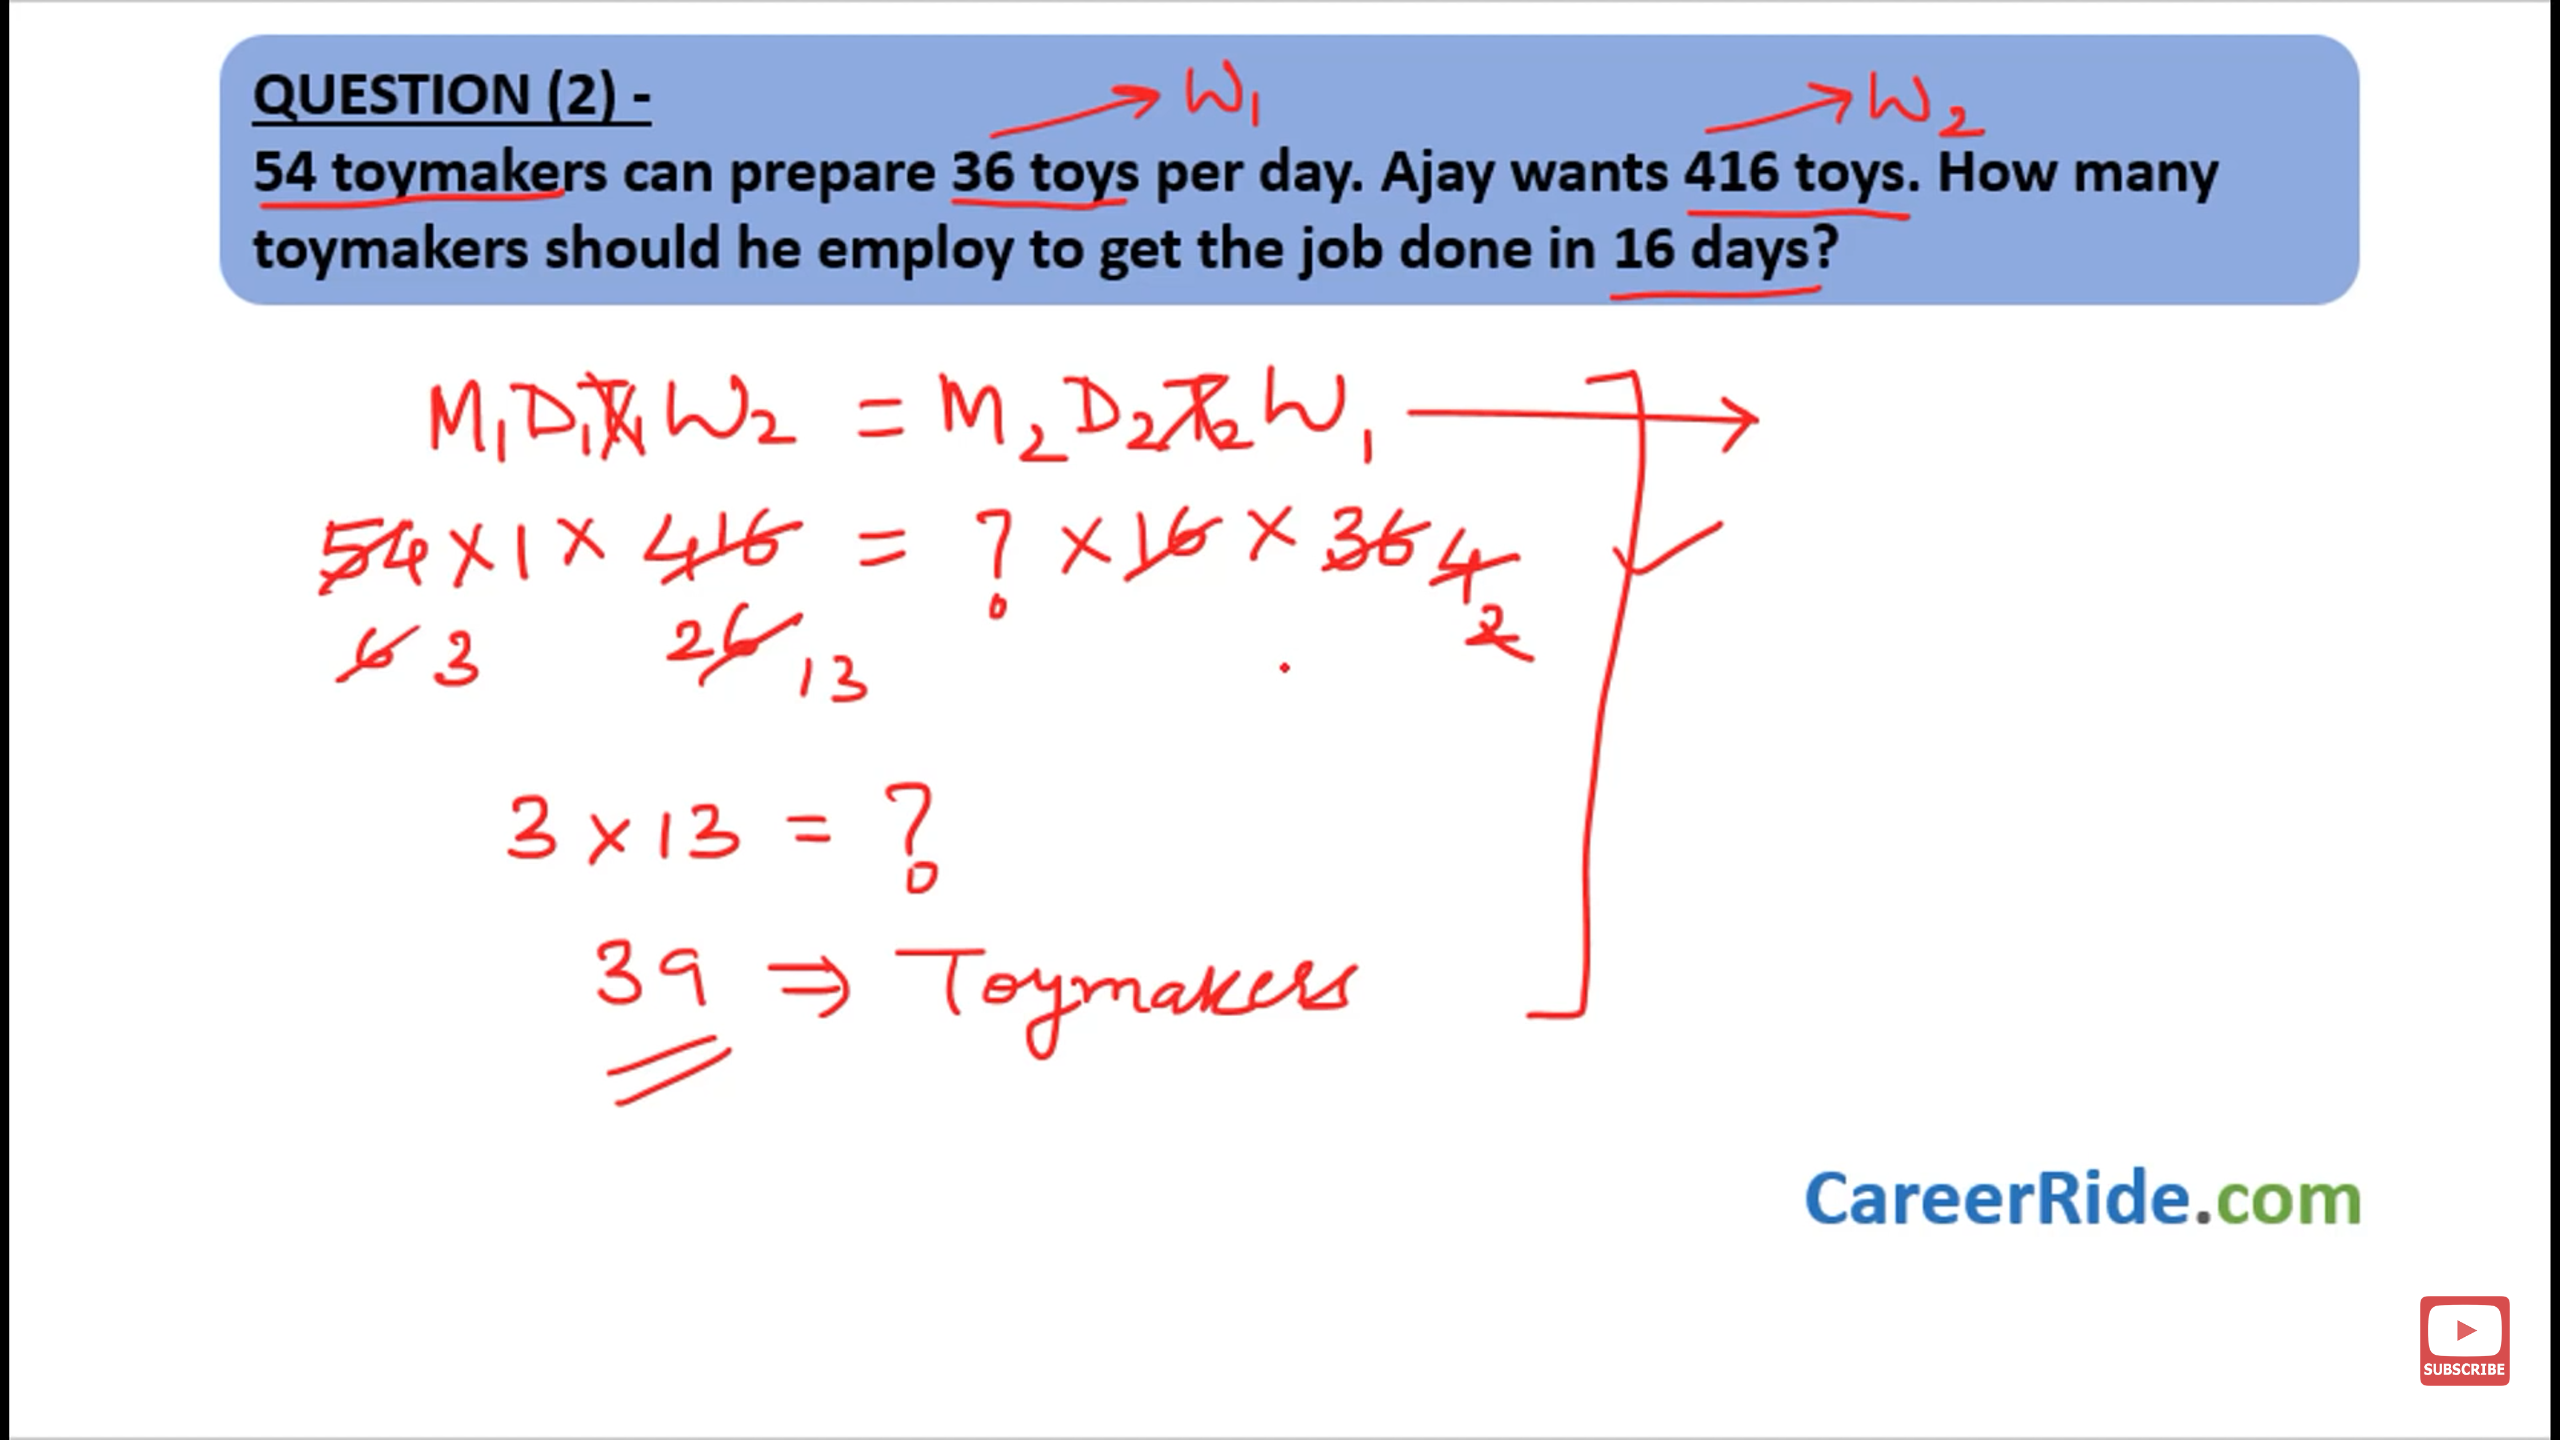 QUESTION (2) -
→ W₁
→ W₂
54 toymakers can prepare 36 toys per day. Ajay wants 416 toys. How many
toymakers should he employ to get the job done in 16 days?
M₁D₁T₁W₂ = M₂D₂T₂W₁ →
54 × 1 × 416 = ? × 16 × 36 4
6 3 26 13 2
3 × 13 = ?
39 ⇒ Toymakers
CareerRide.com
SUBSCRIBE